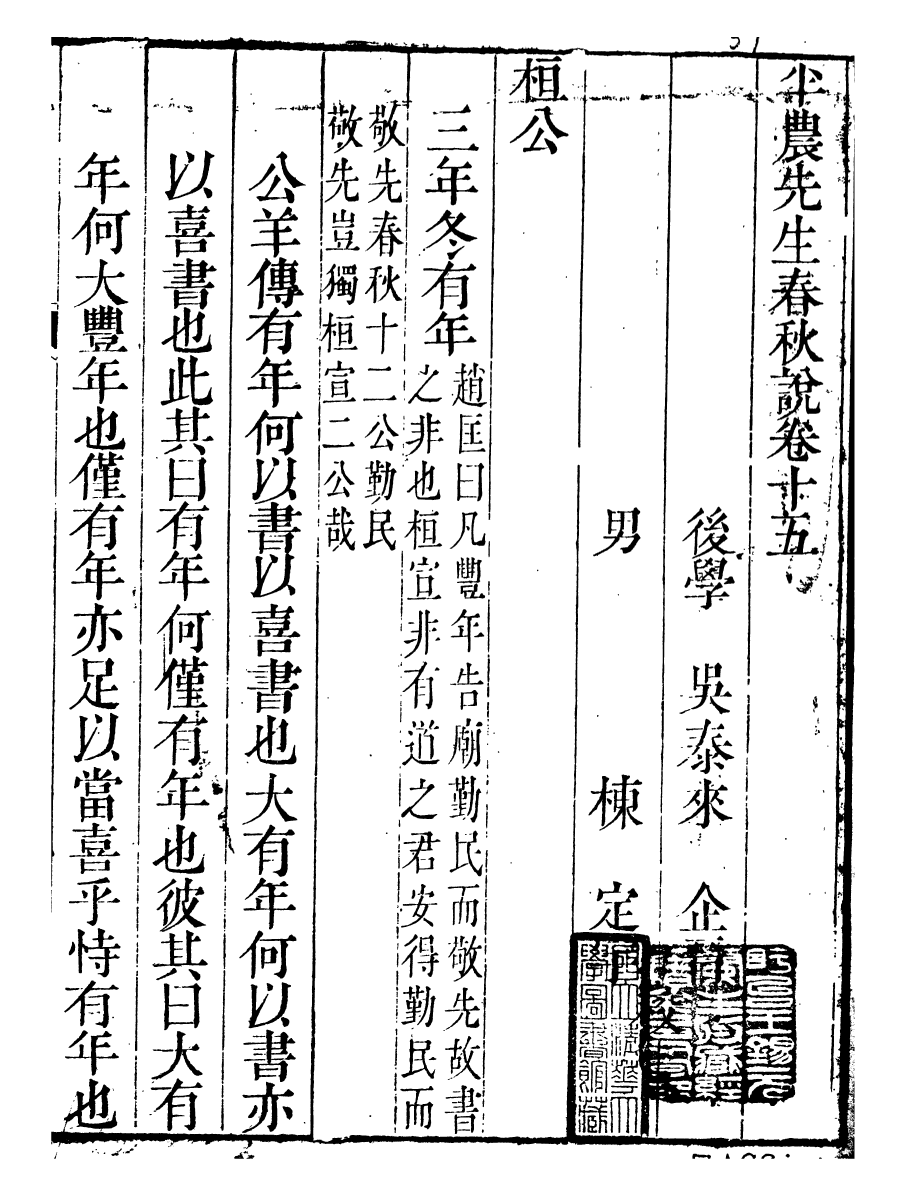 半農先生春秋說卷十五
後學 吳泰來 企
男 棟 定
桓公
三年冬有年
趙匡曰凡豐年告廟勤民而敬先故書
之非也桓宣非有道之君安得勤民而
敬先春秋十二公勤民
敬先豈獨桓宣二公哉
公羊傳有年何以書以喜書也大有年何以書亦
以喜書也此其曰有年何僅有年也彼其曰大有
年何大豐年也僅有年亦足以當喜乎恃有年也
國立清華大
學圖書館藏